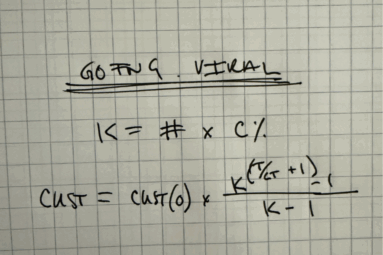 GOING VIRAL
K = # x C%
CUST = CUST(0) x K^(T/CT + 1) - 1 / K - 1